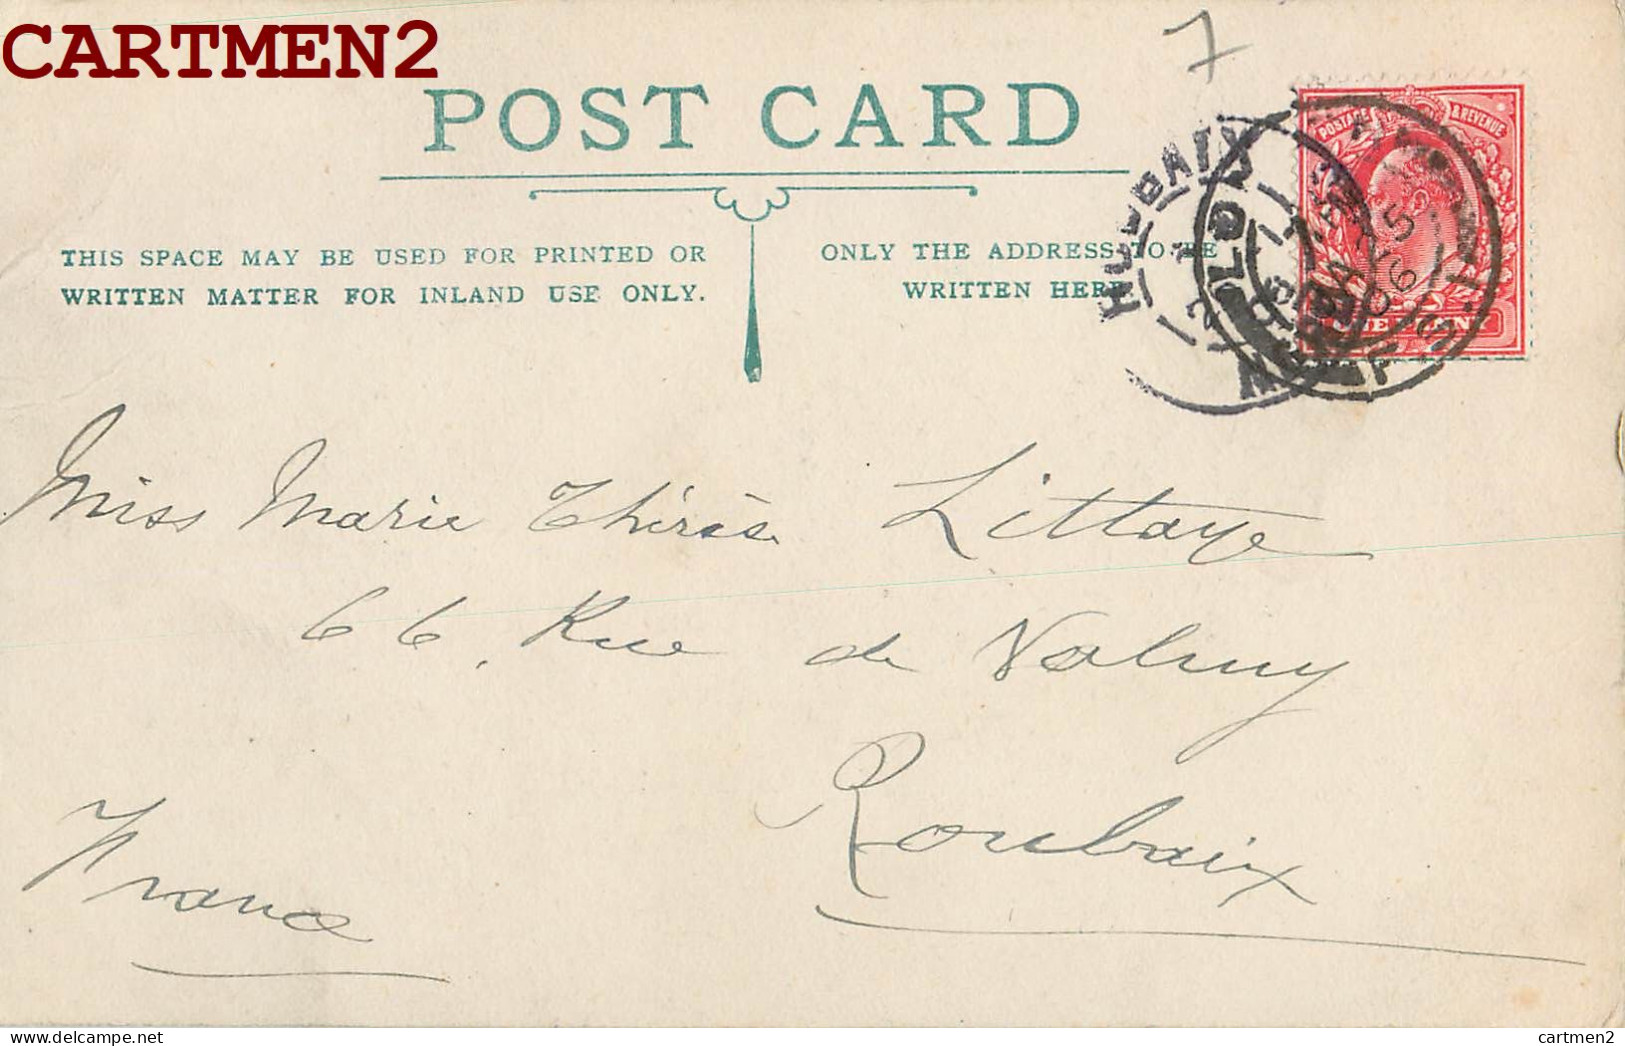 CARTMEN2
7
POST CARD
POSTAGE & REVENUE
THIS SPACE MAY BE USED FOR PRINTED OR
WRITTEN MATTER FOR INLAND USE ONLY.
ONLY THE ADDRESS TO BE
WRITTEN HERE
ROUBAIX
Miss Marie Thérèse Littaye
66, Rue de Valmy
Roubaix
France
delcampe.net
cartmen2